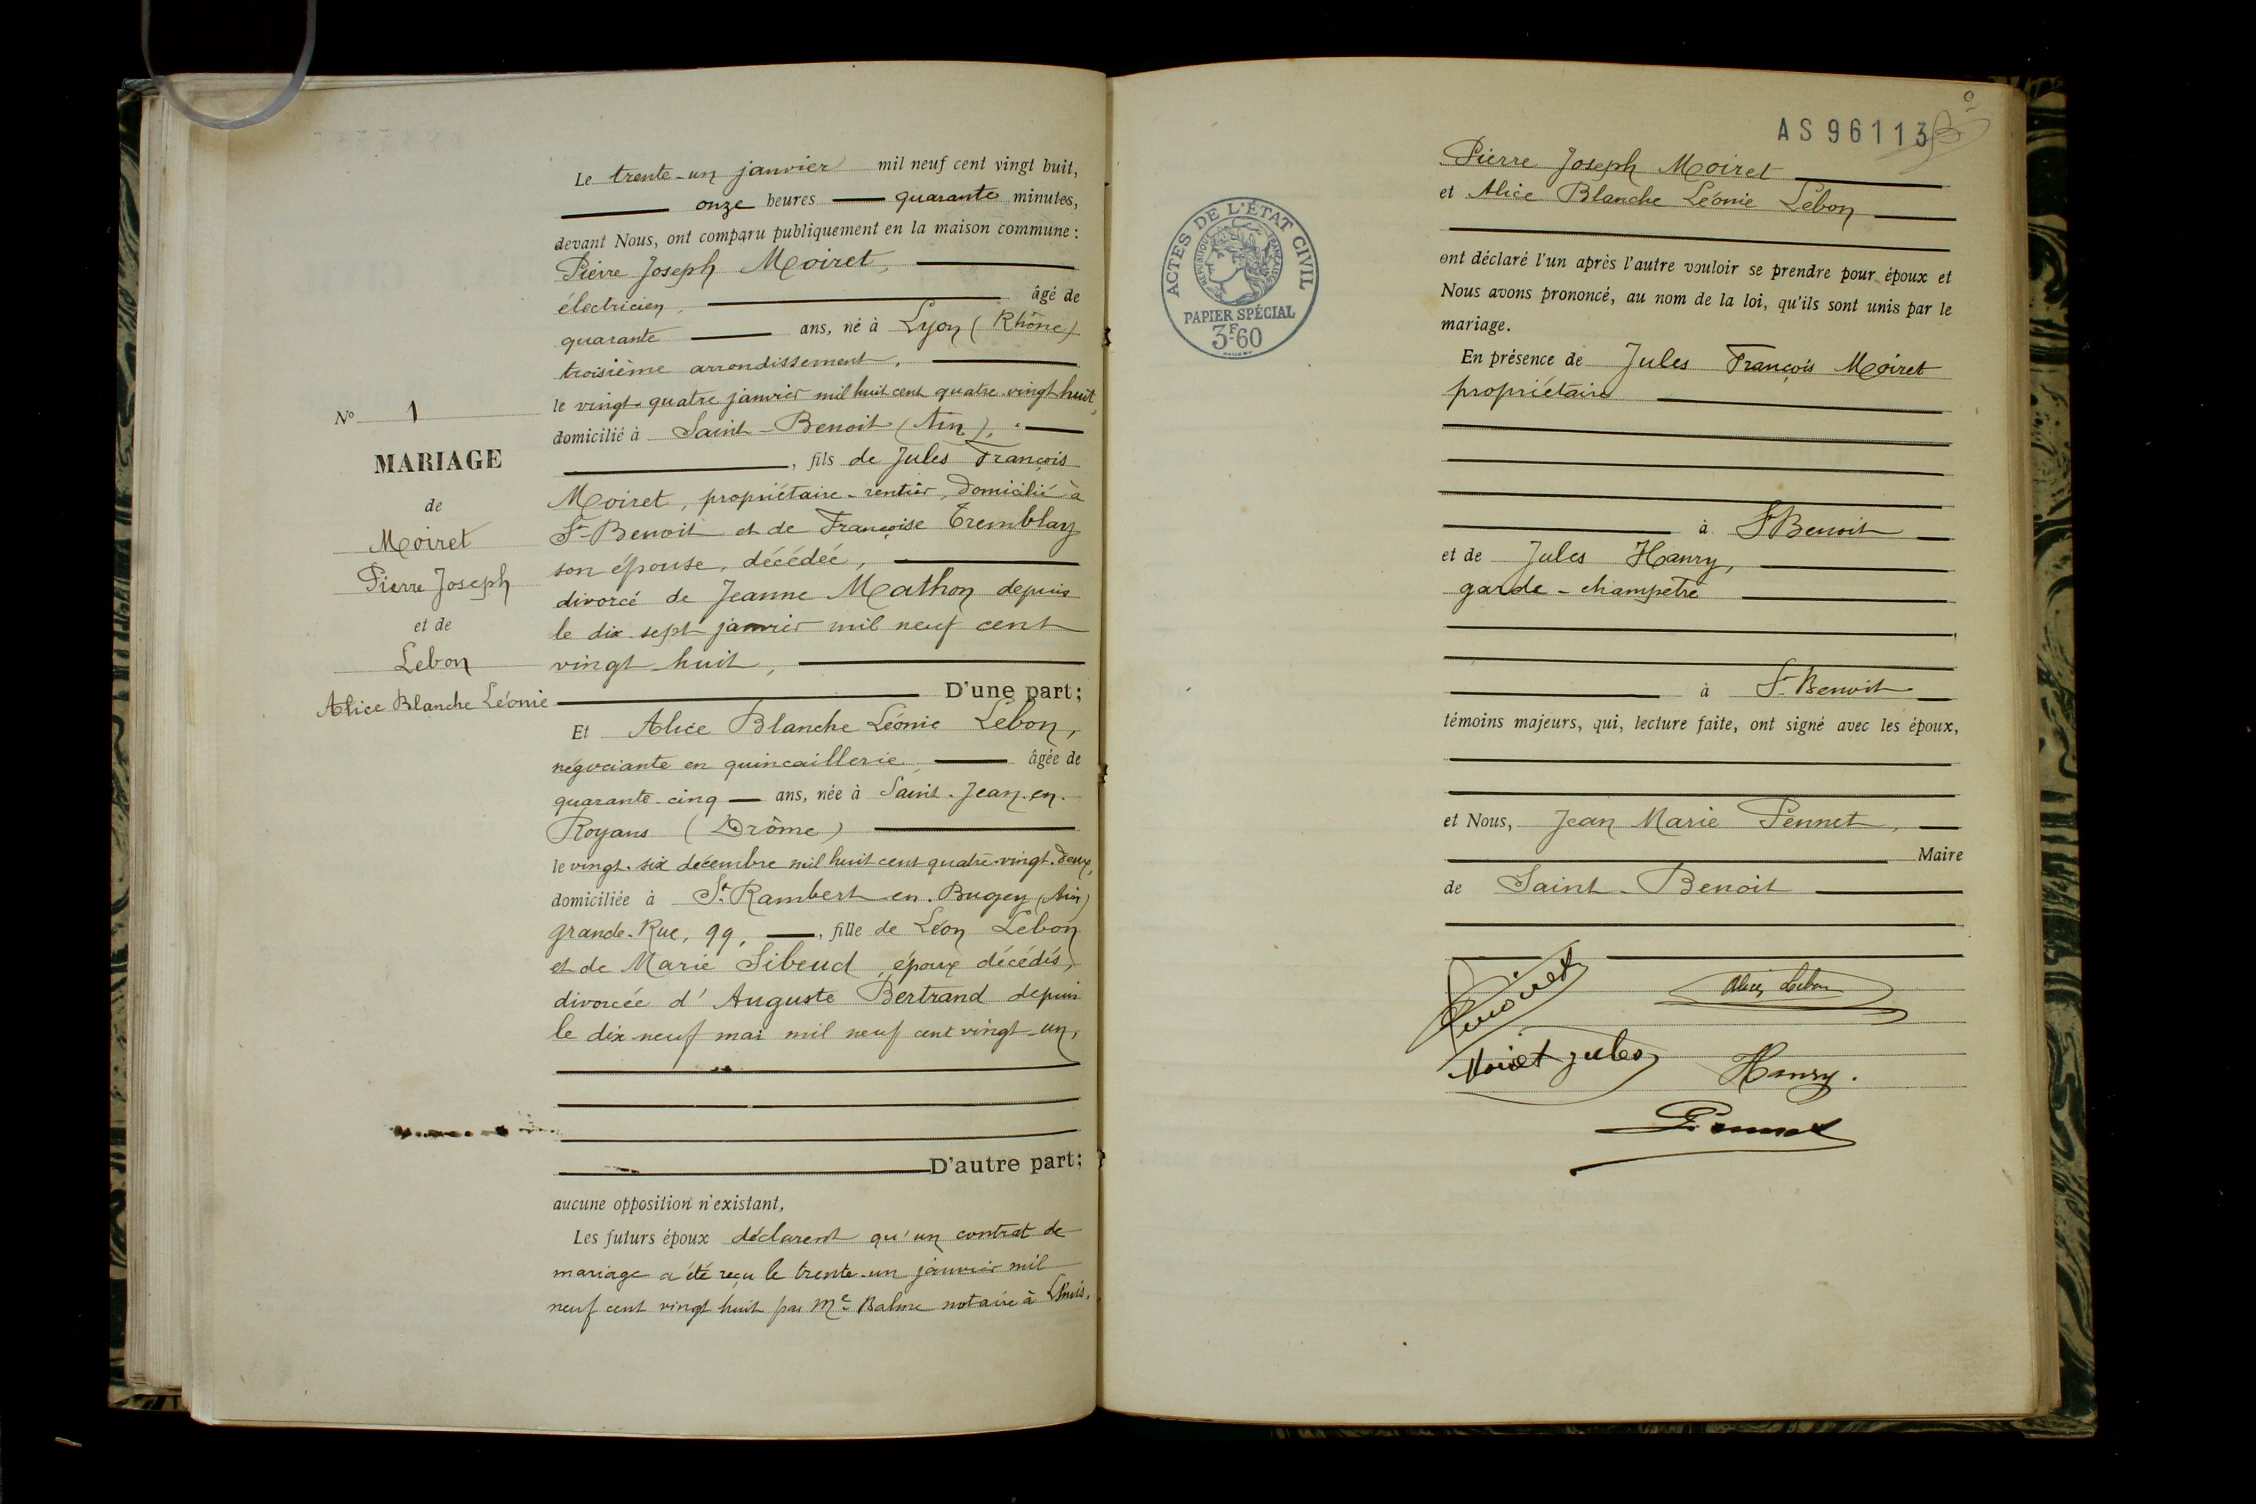 Le trente-un janvier mil neuf cent vingt huit,
onze heures quarante minutes,
devant Nous, ont comparu publiquement en la maison commune :
Pierre Joseph Moiret,
électricien, âgé de
quarante ans, né à Lyon (Rhône)
troisième arrondissement,
le vingt-quatre janvier mil huit cent quatre-vingt huit,
domicilié à Saint-Benoit (Ain),
, fils de Jules François
Moiret, propriétaire-rentier, domicilié à
St-Benoit et de Françoise Tremblay
son épouse, décédée,
divorcé de Jeanne Mathon depuis
le dix sept janvier mil neuf cent
vingt-huit,
D'une part;
Et Alice Blanche Léonie Lebon,
négociante en quincaillerie âgée de
quarante-cinq ans, née à Saint-Jean-en-
Royans (Drôme)
le vingt-six décembre mil huit cent quatre-vingt-deux,
domiciliée à St-Rambert-en-Bugey (Ain)
grande-Rue, 99, , fille de Léon Lebon
et de Marie Sibeud, époux décédés,
divorcée d'Auguste Bertrand depuis
le dix-neuf mai mil neuf cent vingt-un,
D'autre part;
aucune opposition n'existant,
Les futurs époux déclarent qu'un contrat de
mariage a été reçu le trente-un janvier mil
neuf cent vingt huit par Me Balme notaire à Lhuis.
No 1
MARIAGE
de
Moiret
Pierre Joseph
et de
Lebon
Alice Blanche Léonie
AS 96113
Pierre Joseph Moiret
et Alice Blanche Léonie Lebon
ont déclaré l'un après l'autre vouloir se prendre pour époux et
Nous avons prononcé, au nom de la loi, qu'ils sont unis par le
mariage.
En présence de Jules François Moiret
propriétaire
à St Benoit
et de Jules Hanry,
garde-champetre
à St-Benoit
témoins majeurs, qui, lecture faite, ont signé avec les époux,
et Nous, Jean Marie Pennet,
Maire
de Saint-Benoit
Moiret
Alice Lebon
Moiret Jules
Hanry.
Pennet
ACTES DE L'ÉTAT CIVIL
RÉPUBLIQUE FRANÇAISE
PAPIER SPÉCIAL
3F60